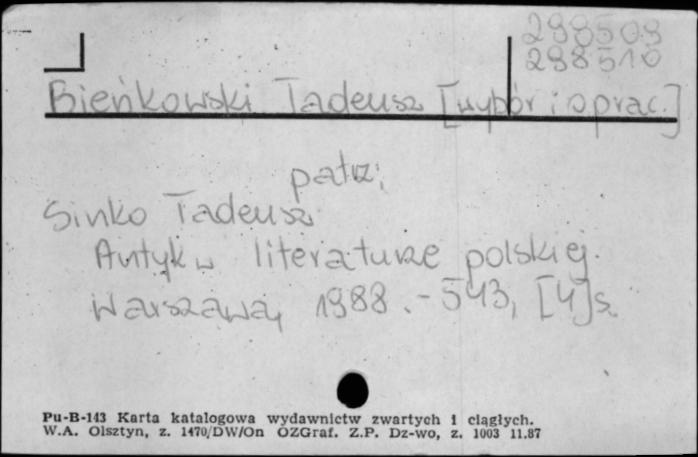 298509
298510
Bieńkowski Tadeusz [wybór i oprac.]
patrz:
Sinko Tadeusz
Antyk w literaturze polskiej.
Warszawa, 1988. - 543, [4] s.
Pu-B-143 Karta katalogowa wydawnictw zwartych i ciągłych.
W.A. Olsztyn, z. 1470/DW/On OZGraf. Z.P. Dz-wo, z. 1003 11.87